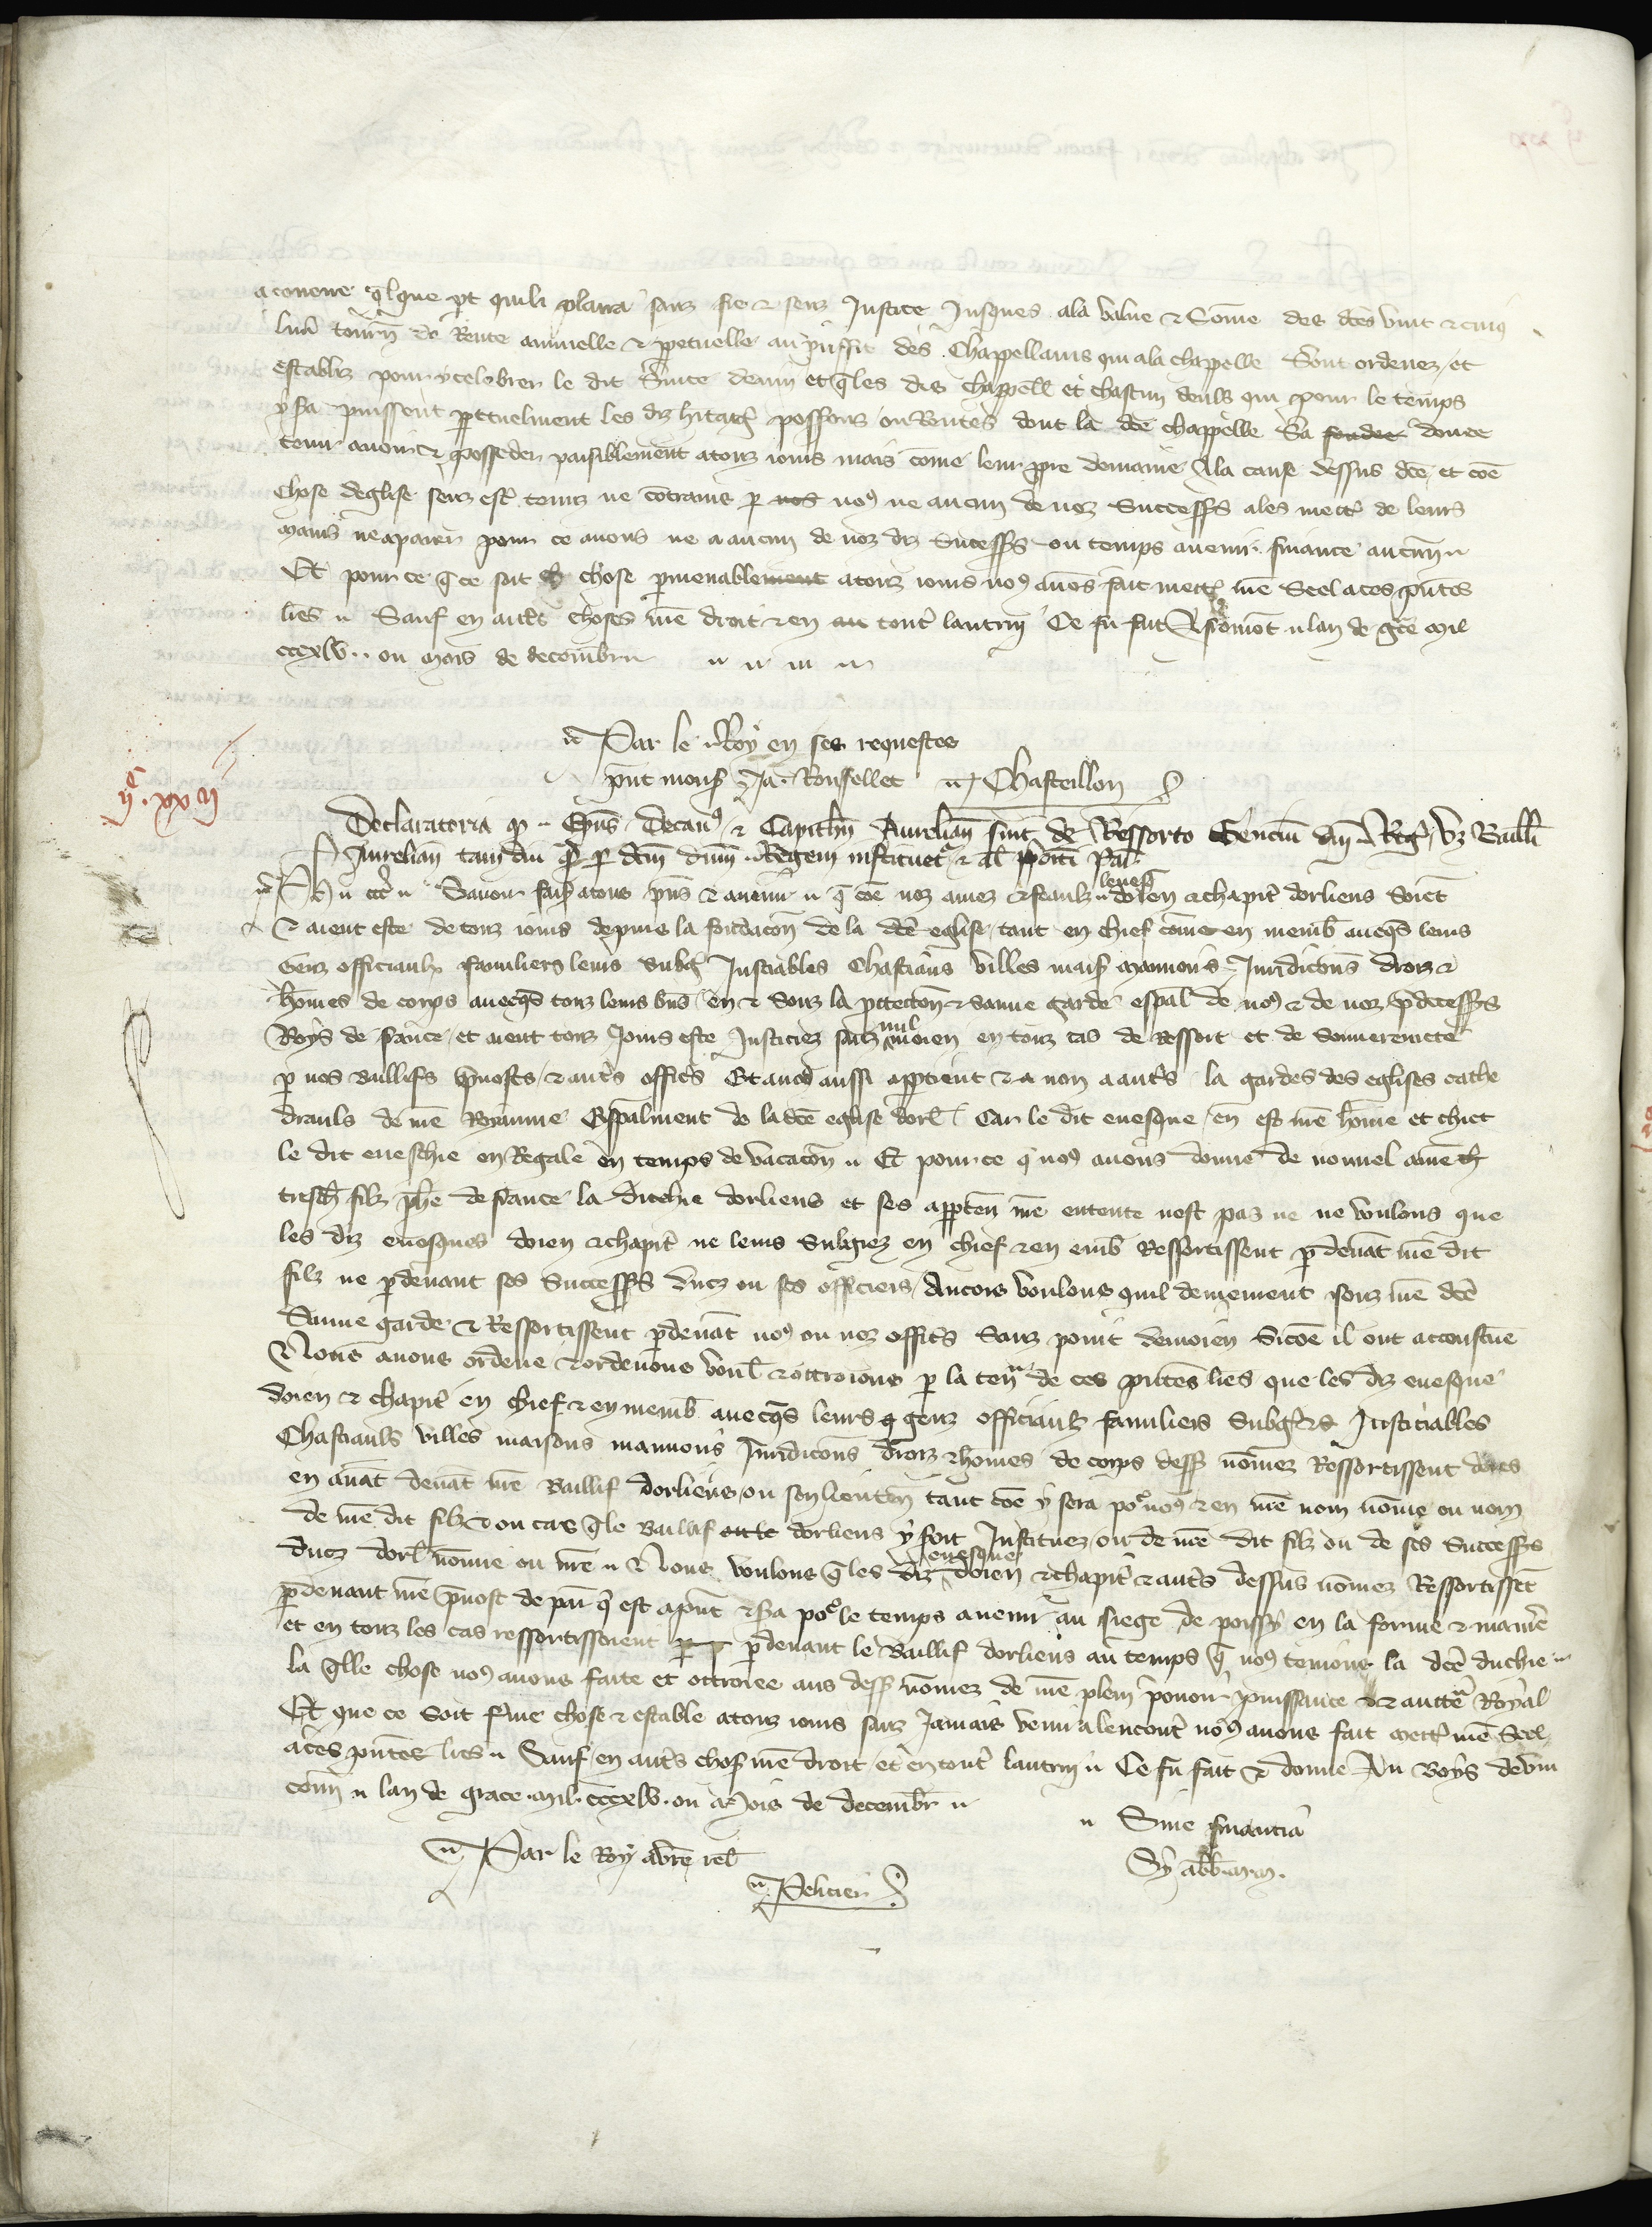 a convenir q̄lque p̄t quili plaira sanz fie et senz Justice Jusques ala value et Somme des dc̄es vint et cinq
livr̄ tourn̄ de Rente annuelle et p̄petuelle au prouffit des Chappellains qui ala chappelle Sont ordenez et
establiz pour y celebrer le dit Svice devin et q̄ les diz chappell̄ et chascun deuls qui pour le temps
y s̄a puissent p̄petuelment les diz h̄itaḡ possess̄ ou Rentes dont la dc̄e chappelle S̄a fondee douee
tenir avoir et posseder paisiblement a touz iours mais come leur p̄pre domaine A la cause dessus dc̄e et coe
Chose deglise senz est̄ tenuz ne cont̄rains p̄ nos no9 ne aucun de noz Successrs ales mett̄ de leurs
mains ne apaier pour ce avons ne a aucun de noz diz Successrs ou temps avenir finance aucune
Et pour ce q̄ ce soit ch chose p̄menablement a touz iours no9 avōs fait mett̄ nr̄e Seel aces p̄ntes
lr̄es Sauf en autres choses nr̄e droit et en au toutes lautruy Ce fu fait A Lan de gr̄ce mil
cccxlv ou mois de decembr̄
Par le Roy en ses requestes
p̄nt mons̄ Ja. Rousselet Chasteillon
iic xx iiii
Declaratoria q̄ Ep̄us Decan9 et Capitl̄m Aurelian̄ sint de Ressorto Gencium dn̄i Reḡ vz Baill̄i
Aurelian̄ tam diu q̄ p̄ dc̄m dn̄m Regem instituet̄ et al p̄poiti Par̄
Ph ec̄t Savoir fais̄ a tous p̄ns et avenir q̄ coe noz amez et feaulz levesq̄ doien et chapit̄ dorliens Soient
et aient este de touz iours depuis la fondacon̄ de la dc̄e eglise tant en chief come en memb̄ avecq̄s leurs
Genz officiaulx familiers leurs Subḡ Justiciables Chastiaus villes mais̄ manoirs Juridicon̄s droiz et
hommes de corps avecq̄s touz leurs biēs en et souz la p̄tection̄ et sauve garde esp̄al de no9 et de noz p̄decessrs
Roys de france et aient touz Jours este Justiciez sanz nul moien en touz cas de Ressort et de souverenete
p̄ nos Baillifs p̄vosts et aut̄s offic̄s Et a no9 aussi app̄tient et a non a aut̄s la gardes des eglises cathe
draulx de nr̄e Royaume Esp̄alment de la dc̄e eglise dorl̄ Car le dit evesque en est nr̄e homme et chiet
le dit eveschie en Regale en temps de vacacon̄ Et pour ce q̄ no9 avons donne de nouvel a nr̄e ch̄
tresch̄ filz ph̄e de france la duchie dorliens et ses app̄ten̄ nr̄e entente nest pas ne ne voulons que
les diz evesques doien et chapit̄ ne leurs Subgiez en chief et en memb̄ Ressortissent p̄ devāt nr̄e dit
filz ne p̄ devant ses Successrs ducz ou ses officiers Ancois voulons quil demeurent souz nr̄e dc̄e
Sauve garde et Ressortissent p̄ devāt no9 ou noz offic̄s Sanz point de moien Si coe il ont acoustume
Et Nous avons ordene et ordenons voul̄ et ottroions p̄ la ten̄ra de ces p̄ntes lr̄es que les diz evesque
doien et chapit̄ en chief et en memb̄ avecq̄s leurs q genz officiaulx familiers Subgez Justiciables
Chastiaulx villes maisons mannoirs Juridicon̄s droiz et hommes de corps dess̄ nommez Ressortissent dores
en avāt devāt nr̄e Baillif dorliens ou son lieuten̄ tant coe y sera por no9 et en nr̄e nom nomme ou nom
de nr̄e dit filz et ou cas q̄ le Baillif dorliens y soit Instituez ou de nr̄e dit filz ou de ses Successrs
ducz dorl̄ nomme ou nr̄e Et Nous voulons q̄ les diz evesque doien et chapit̄ et aut̄s dessus nommez Ressortissēt
p̄ devant nr̄e p̄vost de par̄ q̄ est ap̄nt et s̄a por le temps avenir au siege de poissy en la forme et maniē
et en touz les cas ressortissoient p̄ p̄ devant le Baillif dorliens au temps q̄ no9 tenions la dc̄e duchie
la q̄lle chose no9 avons faite et ottroiee aus dess̄ nommez de nr̄e plein povoir puissance et auctē Royal
Et que ce soit ferme chose et estable a touz iours sanz Jamais venir alencontre no9 avons fait mett̄ nr̄e Seel
a ces p̄ntes lr̄es Sauf en aut̄s chos̄ nr̄e droit et en tout̄ lautruy Ce fu fait et donne Au Boys de vin
cenn̄ lan de grace mil cccxlv ou mois de decembr̄
Sine financia
Par le Roy a vr̄e rel̄
Pelicier